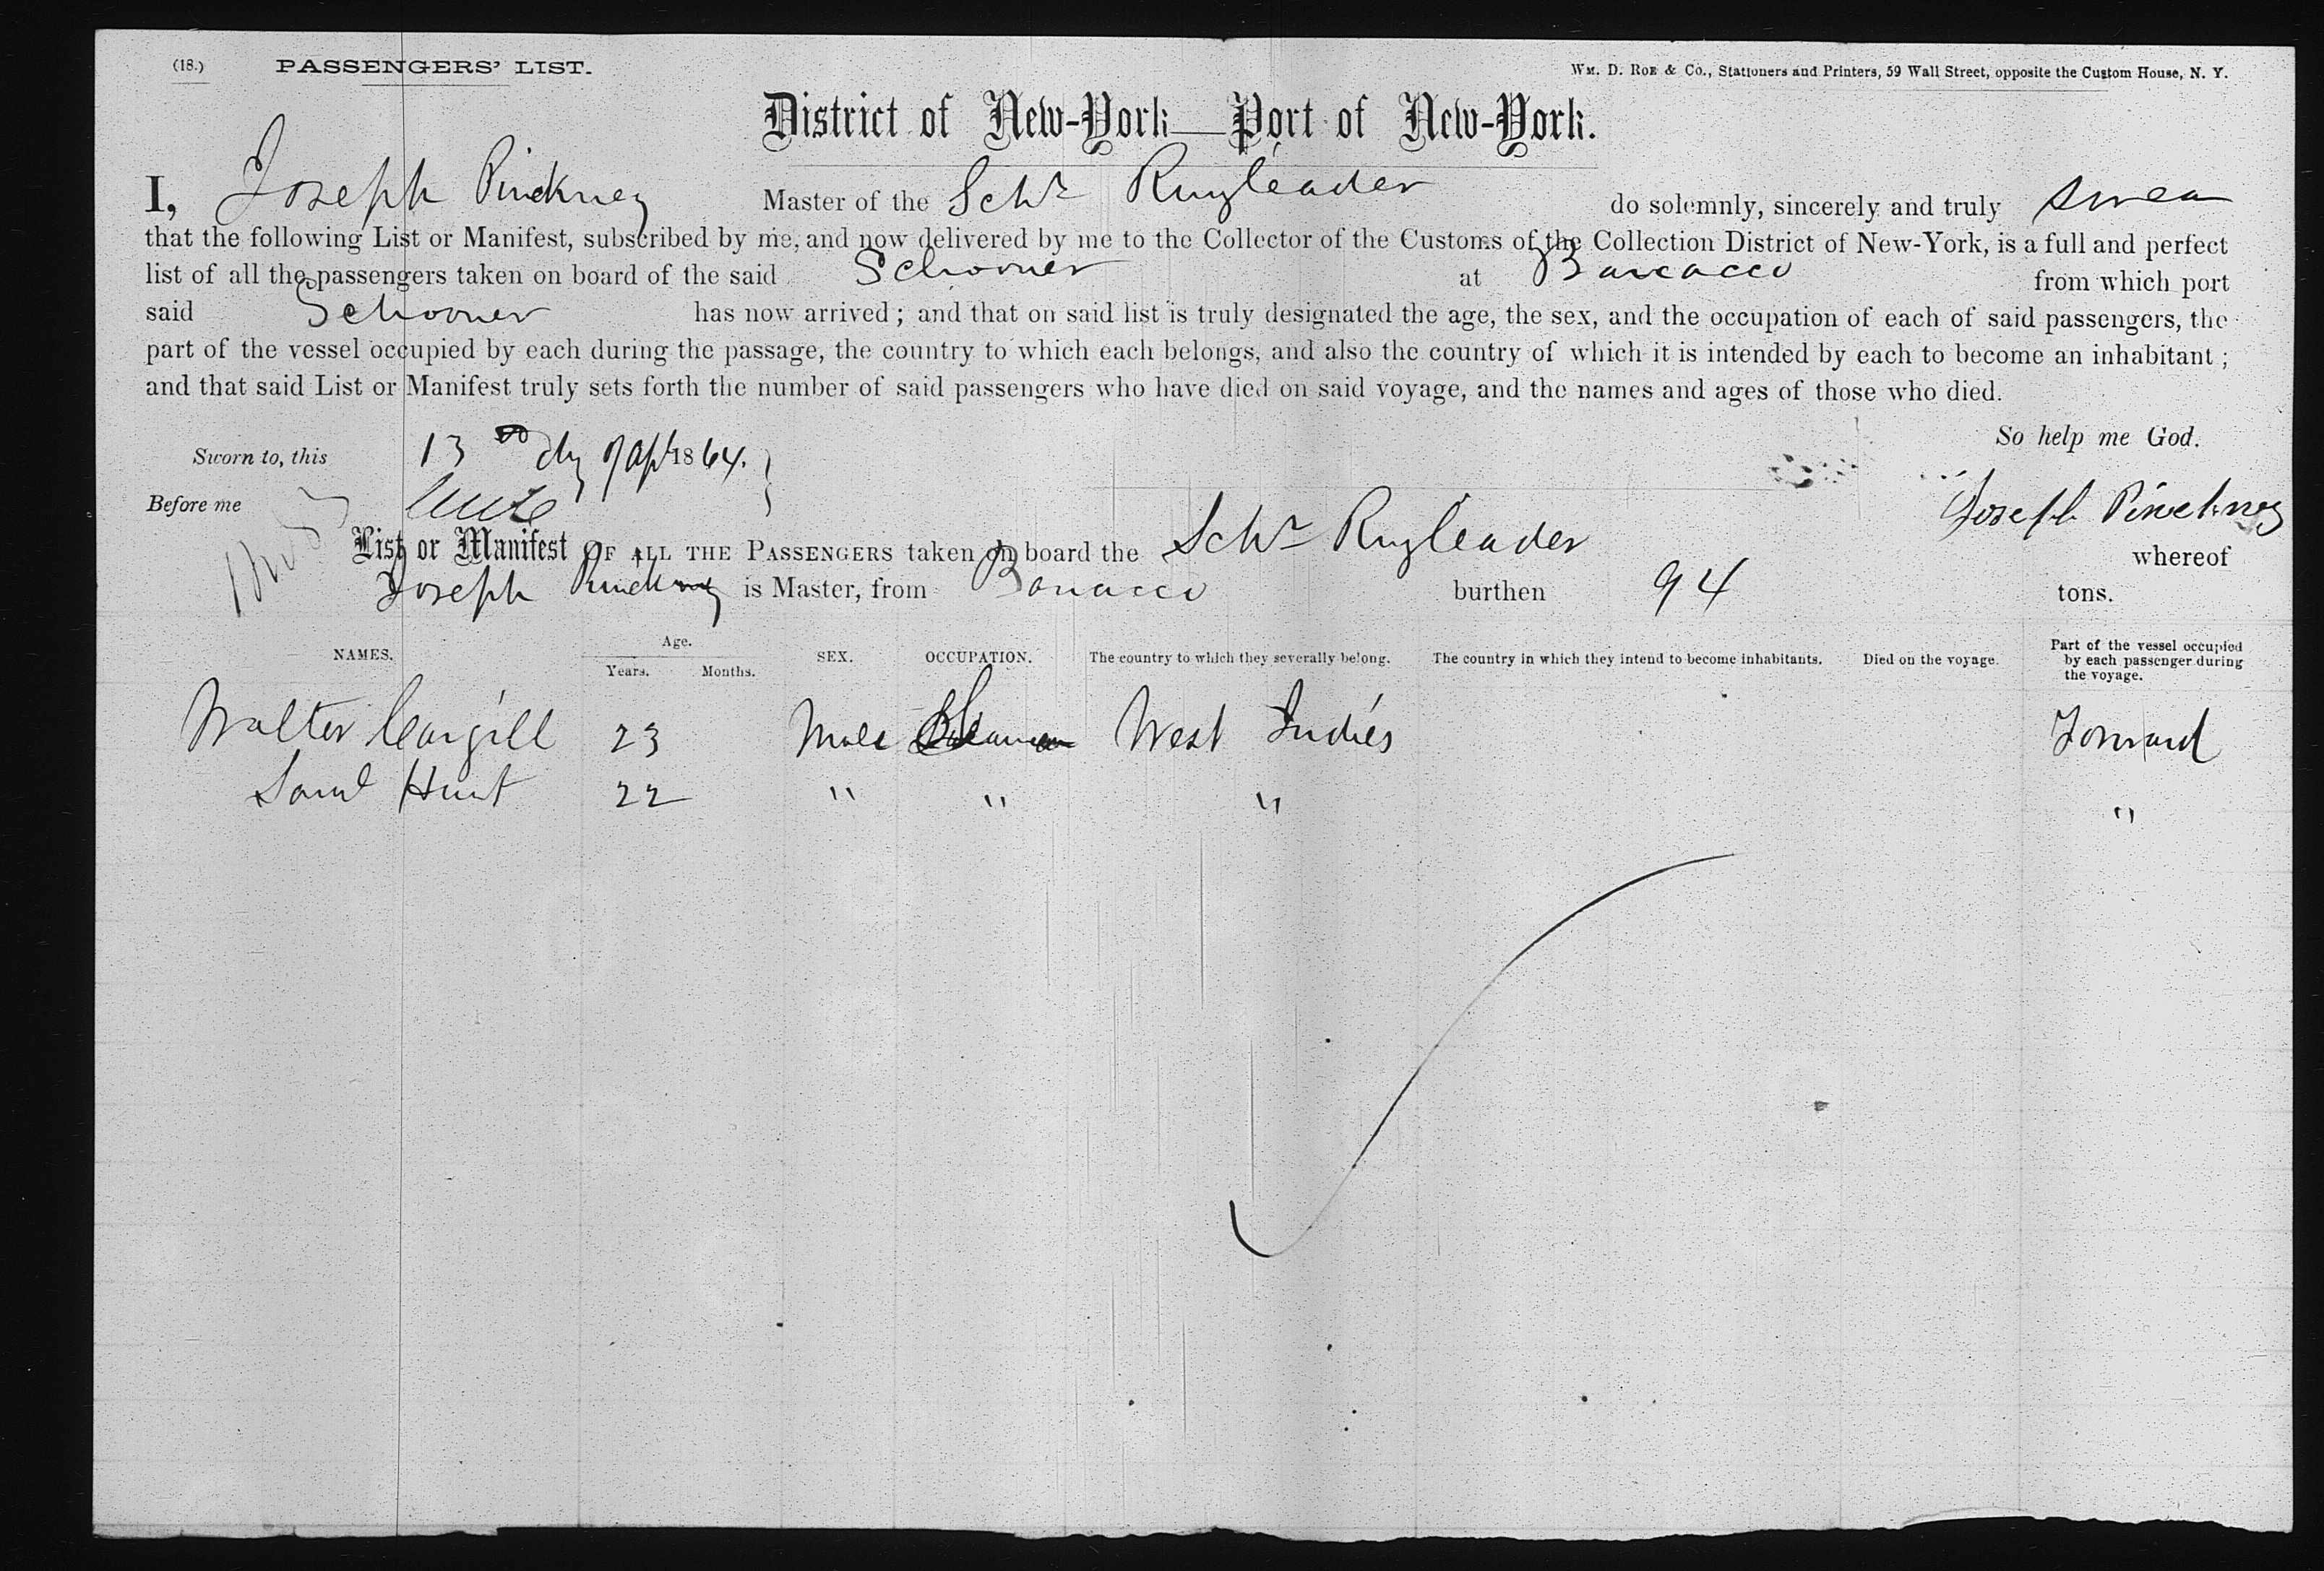 (18.) PASSENGERS' LIST. WM. D. ROE & CO., Stationers and Printers, 59 Wall Street, opposite the Custom House, N. Y.
District of New-York—Port of New-York.
I, Joseph Pinckney Master of the Schr Ringleader do solemnly, sincerely and truly swear
that the following List or Manifest, subscribed by me, and now delivered by me to the Collector of the Customs of the Collection District of New-York, is a full and perfect
list of all the passengers taken on board of the said Schooner at Bonacco from which port
said Schooner has now arrived; and that on said list is truly designated the age, the sex, and the occupation of each of said passengers, the
part of the vessel occupied by each during the passage, the country to which each belongs, and also the country of which it is intended by each to become an inhabitant;
and that said List or Manifest truly sets forth the number of said passengers who have died on said voyage, and the names and ages of those who died.
So help me God.
Sworn to, this 13 day of Apl 1864.
Before me
Joseph Pinckney
List or Manifest OF ALL THE PASSENGERS taken on board the Schr Ringleader whereof
Joseph Pinckney is Master, from Bonacco burthen 94 tons.
NAMES. Age. Years. Months. SEX. OCCUPATION. The country to which they severally belong. The country in which they intend to become inhabitants. Died on the voyage. Part of the vessel occupied by each passenger during the voyage.
Walter Cargill 23 Male Seaman West Indies Forward
Saml Hunt 22 " " " "